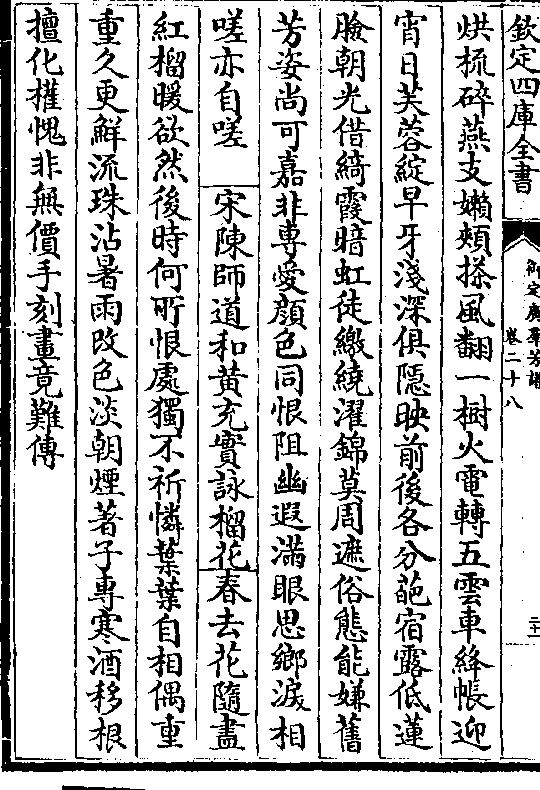 欽定四庫全書
御定廣羣芳譜
卷二十八
烘梳碎燕支嬾頰搽風翻一樹火電轉五雲車絳帳迎
宵日芙蓉綻早牙淺深俱隱映前後各分葩宿露低蓮
臉朝光借綺霞暗虹徒繳繞濯錦莫周遮俗態能嫌舊
芳姿尚可嘉非專愛顔色同恨阻幽遐滿眼思鄉淚相
嗟亦自嗟 宋陳師道和黃充實詠榴花春去花隨盡
紅榴暖欲然後時何所恨處獨不祈憐葉葉自相偶重
重久更鮮流珠沾暑雨改色淡朝煙著子專寒酒移根
擅化權愧非無價手刻畫竟難傳